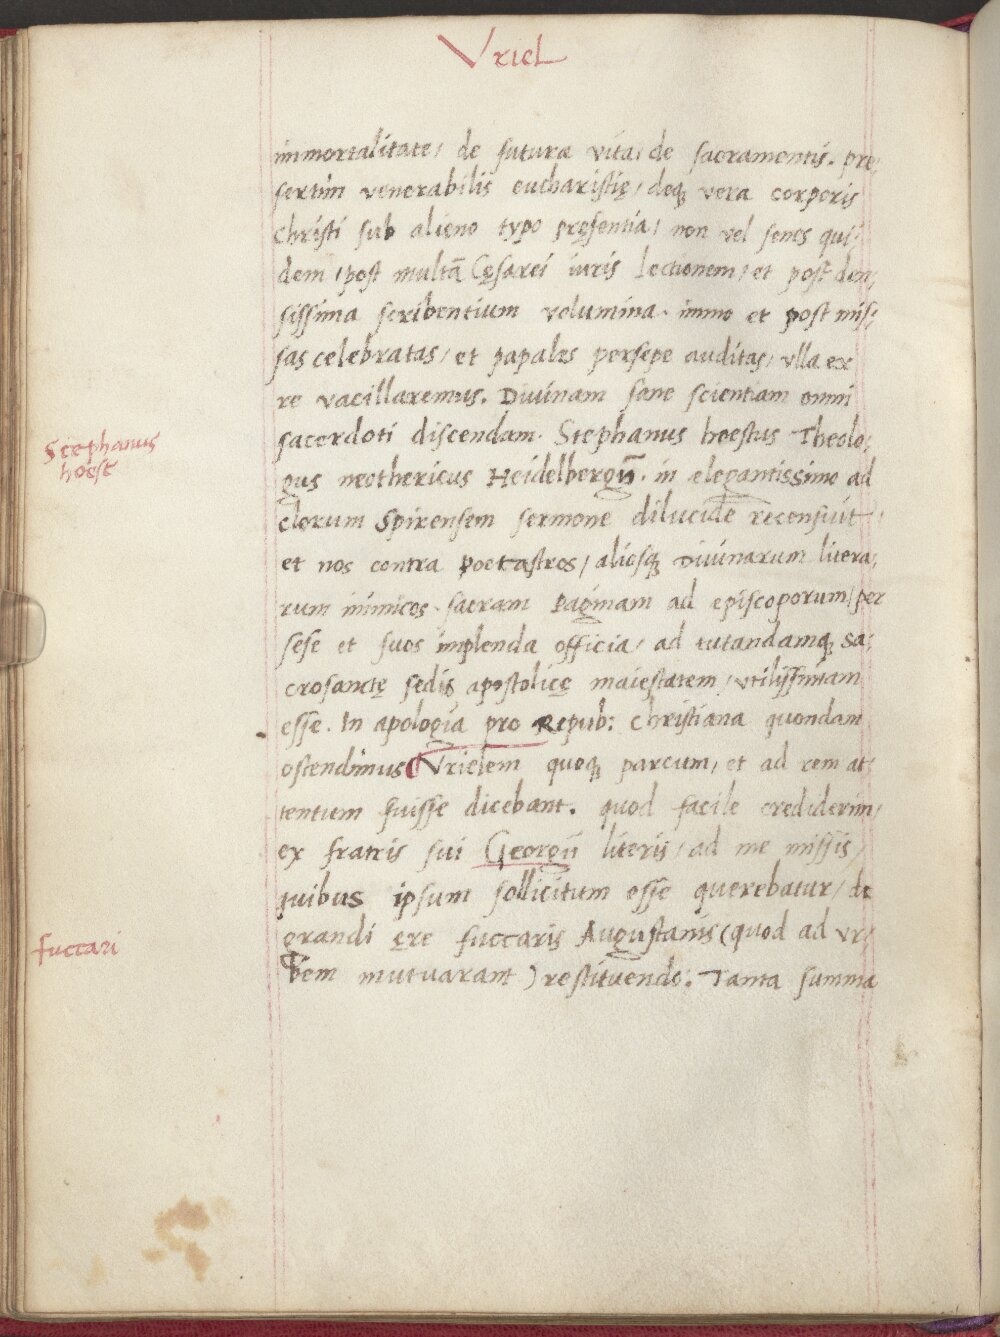 Vriel
immortalitate, de futura vita, de sacramentis. pre,
sertim venerabilis eucharistię, deq; vera corporis
Christi sub alieno typo pręsentia, non vel senes qui,
dem, post multā Cęsarei iuris lectionem, et post den,
sissima scribentium volumina. immo et post mis,
sas celebratas, et papales persepe auditas, vlla ex
re vacillaremus. Diuinam sane scientiam omni
sacerdoti discendam. Stephanus hoestus Theolo,
Stephanus
hoest
gus neothericus Heidelbergen̄. in elegantissimo ad
clerum Spirensem sermone dilucide recensuit,
et nos contra poetastros, aliosq; Diuinarum litera,
rum inimicos. sacram Paginam ad episcoporum, per
sese et suos implenda officia, ad tutandamq; sa,
crosanctę sedis apostolicę maiestatem, vtilissimam
esse. In apologia pro Repub: Christiana quondam
ostendimus Vrielem quoq; parcum, et ad rem at,
tentum fuisse dicebant. quod facile crediderim,
ex fratris sui Georgii literis, ad me missis,
quibus ipsum sollicitum esse querebatur, de
grandi ęre fuccaris Augustanis (quod ad vr,
fuccari
bem mutuarant) restituendo. Tanta summa